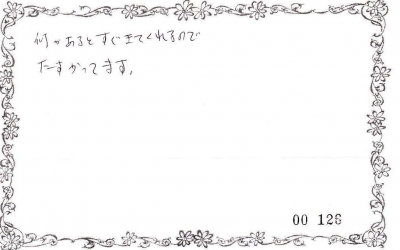 何かあるとすぐきてくれるので
たすかってます。
00 126